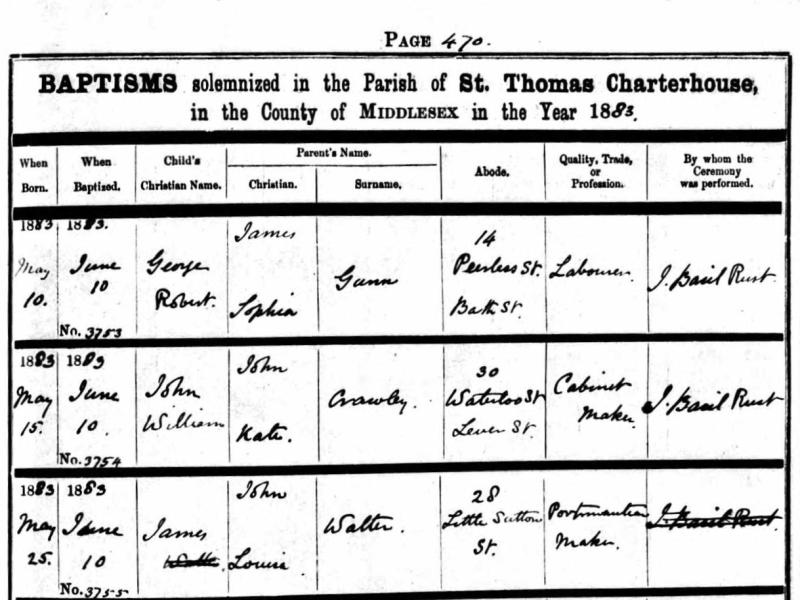 PAGE 470.
BAPTISMS solemnized in the Parish of St. Thomas Charterhouse,
in the County of MIDDLESEX in the Year 1883.
When Born.
When Baptized.
Child's Christian Name.
Parent's Name.
Christian.
Surname.
Abode.
Quality, Trade, or Profession.
By whom the Ceremony was performed.
1883 May 10.
1883. June 10
No. 3753
George Robert.
James
Sophia
Gunn
14 Peerless St. Bath St.
Labourer.
J. Basil Rust
1883 May 15.
1883 June 10.
No. 3754
John William
John
Kate.
Crawley.
30 Waterloo St Lever St.
Cabinet Maker.
J. Basil Rust
1883 May 25.
1883 June 10
No. 3755
James
John
Louisa
Walter.
28 Little Sutton St.
Portmanteau Maker.
J. Basil Rust.